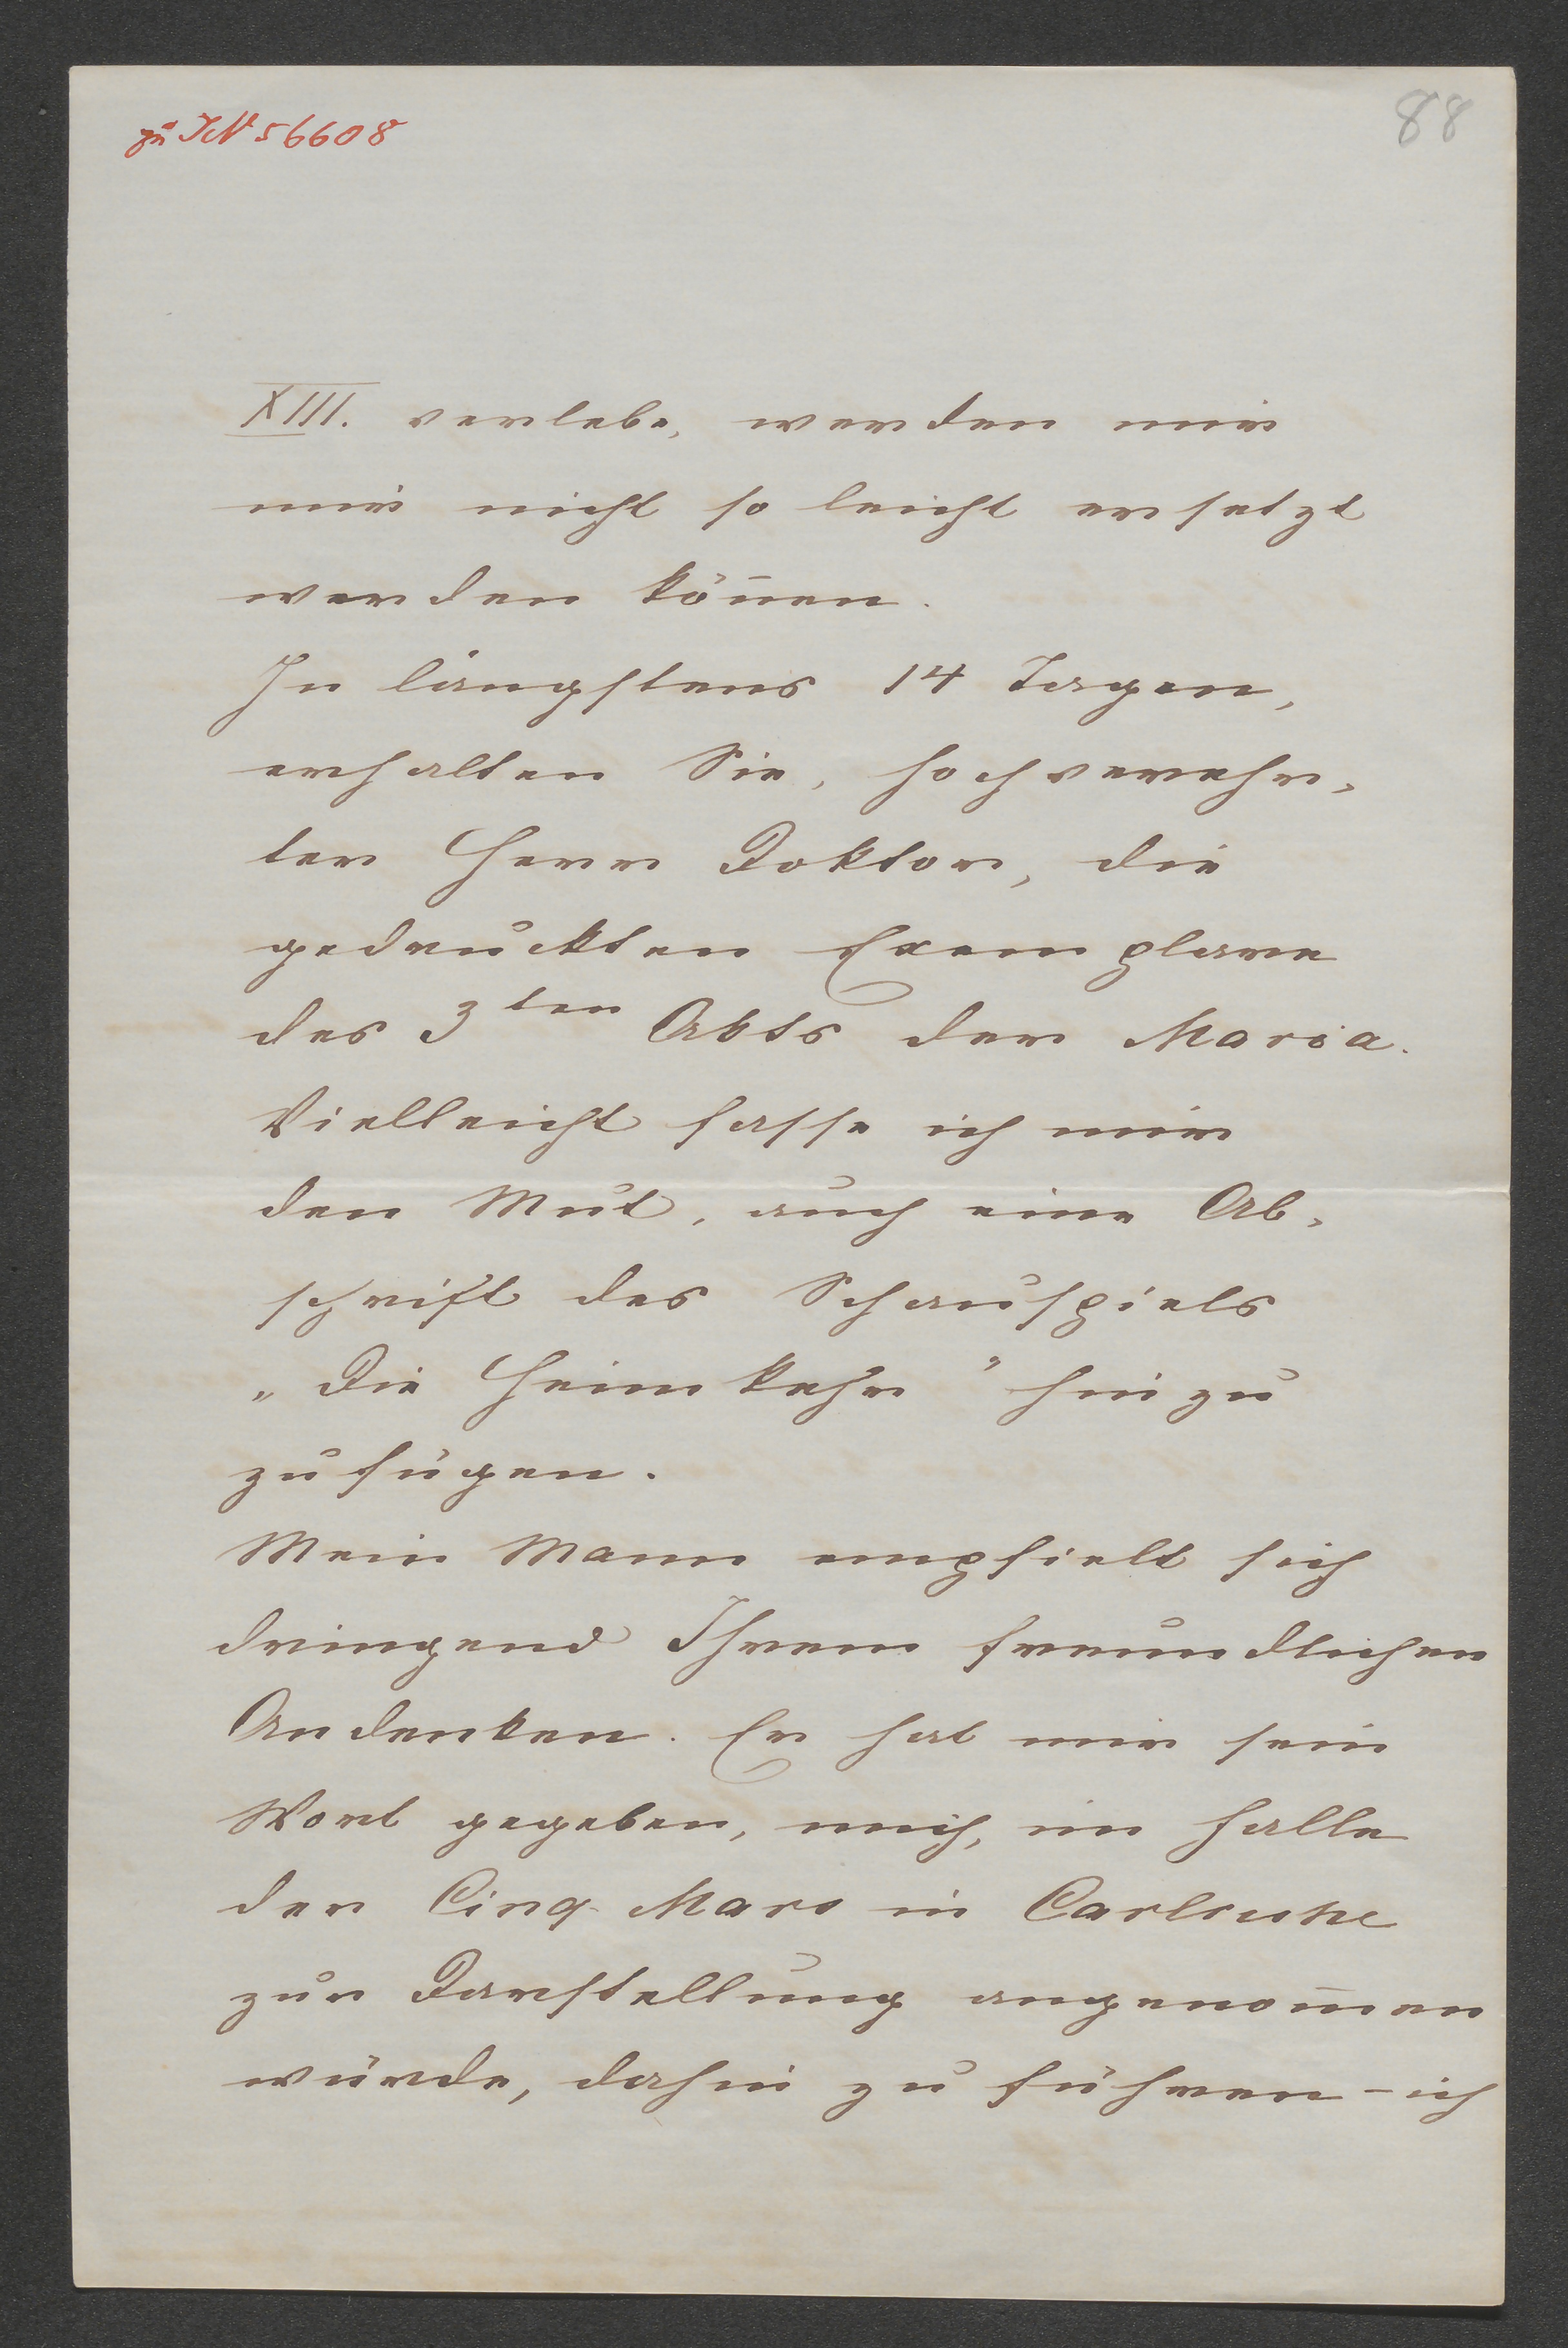 zu IN 56608
88
XIII. verlebe, werden mir
mir nicht so leicht ersetzt
werden kön̄en.
In längstens 14 Tagen,
erhalten Sie, hochverehr-
ter Herr Doktor, die
gedruckten Exemplare
des 3ten Akts der Maria.
Vielleicht fasse ich mir
den Mut, auch eine Ab-
schrift des Schauspiels
„Die Heimkehr" hinzu
zu fügen.
Mein Mann empfielt sich
dringend Ihrem freundlichen
Andenken. Er hat mir sein
Wort gegeben, mich, im Falle
der Cinq-Mars in Carlsruhe
zur Darstellung angenom̄en
würde, dahin zu führen – ich